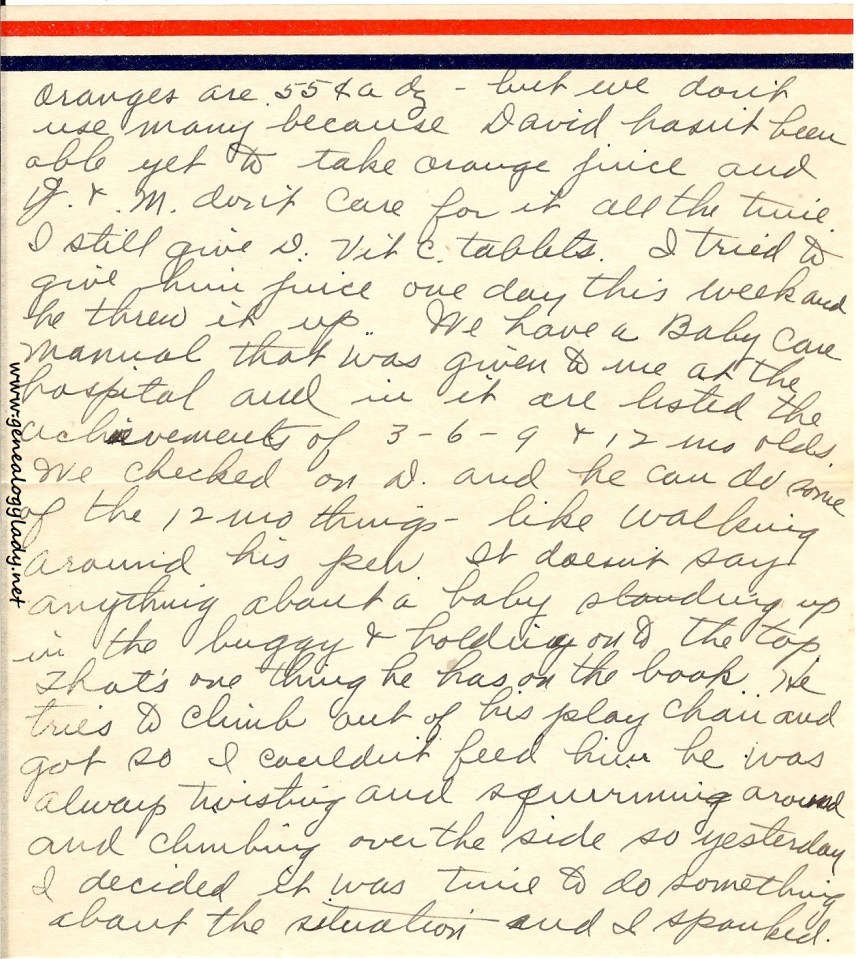 oranges are .55¢ a dz - but we don't
use many because David hasn't been
able yet to take orange juice and
J. & M. don't care for it all the time.
I still give D. Vit C. tablets. I tried to
give him juice one day this week and
he threw it up. We have a Baby Care
manual that was given to me at the
hospital and in it are listed the
achievements of 3-6-9 & 12 mo olds.
We checked on D. and he can do some
of the 12 mo things - like walking
around his pen. It doesn't say
anything about a baby standing up
in the buggy & holding on to the top
That's one thing he has on the book He
tries to climb out of his play chair and
got so I couldn't feed him he was
always twisting and squrrming around
and climbing over the side so yesterday
I decided it was time to do something
about the situation and I spanked.
www.genealogylady.net